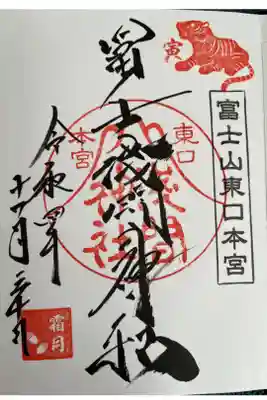 寅
富士山東口本宮
冨士浅間神社
東口
本宮
浅間神社
令和四年
十一月二十三日
霜月